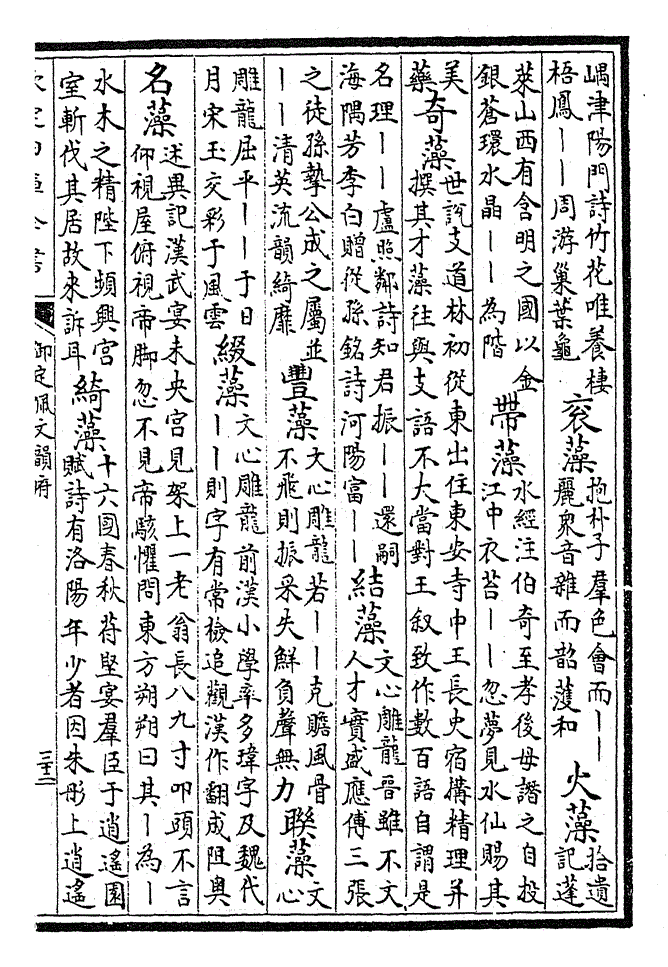 嵎津陽門詩竹花唯養棲
梧鳳丨丨周游巢葉龜
衮藻
抱朴子羣色會而丨丨
麗衆音雜而韶濩和
火藻
拾遺
記蓬
萊山西有含明之國以金
銀蒼環水晶丨丨為階
帶藻
水經注伯奇至孝後母譖之自投
江中衣苔丨丨忽夢見水仙賜其
美
藥
奇藻
世說支道林初從東出住東安寺中王長史宿構精理并
撰其才藻往與支語不大當對王叙致作數百語自謂是
名理丨丨盧照鄰詩知君振丨丨還嗣
海隅芳李白贈從孫銘詩河陽富丨丨
結藻
文心雕龍晉雖不文
人才實盛應傅三張
之徒孫摯公成之屬並
丨丨清英流韻綺靡
豐藻
文心雕龍若丨丨克贍風骨
不飛則振采失鮮負聲無力
聯藻
文
心
雕龍屈平丨丨于日
月宋玉交彩于風雲
綴藻
文心雕龍前漢小學率多瑋字及魏代
丨丨則字有常檢追觀漢作翻成阻奧
名藻
述異記漢武宴未央宫見架上一老翁長八九寸叩頭不言
仰視屋俯視帝脚忽不見帝駭懼問東方朔朔曰其丨為丨
水木之精陛下頻興宫
室斬伐其居故來訴耳
綺藻
十六國春秋苻堅宴羣臣于逍遥園
賦詩有洛陽年少者因朱彤上逍遥
欽定四庫全書
御定佩文韻府